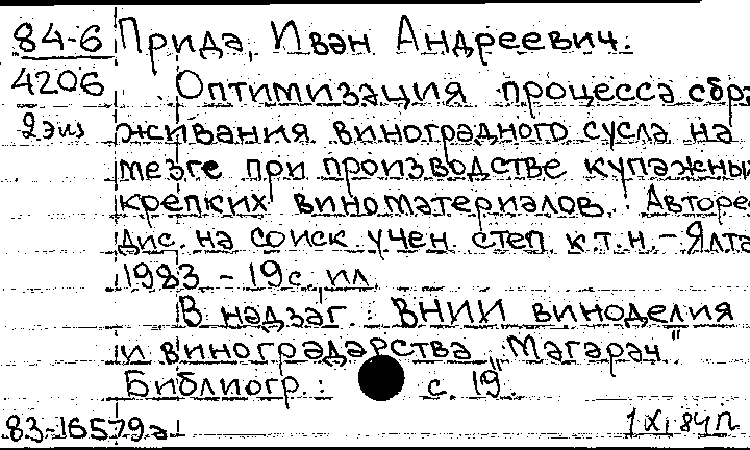 84-6 Прида, Иван Андреевич.
4206 Оптимизация процесса сбра
2 экз живания виноградного сусла на
мезге при производстве купажны
крепких виноматериалов. Авторе
дис. на соиск. учен. степ к.т.н. - Ялта
1983 - 19 с. ил
В надзаг.: ВНИИ виноделия
и виноградарства "Магарач"
Библиогр.: с. 19.
83-16579а